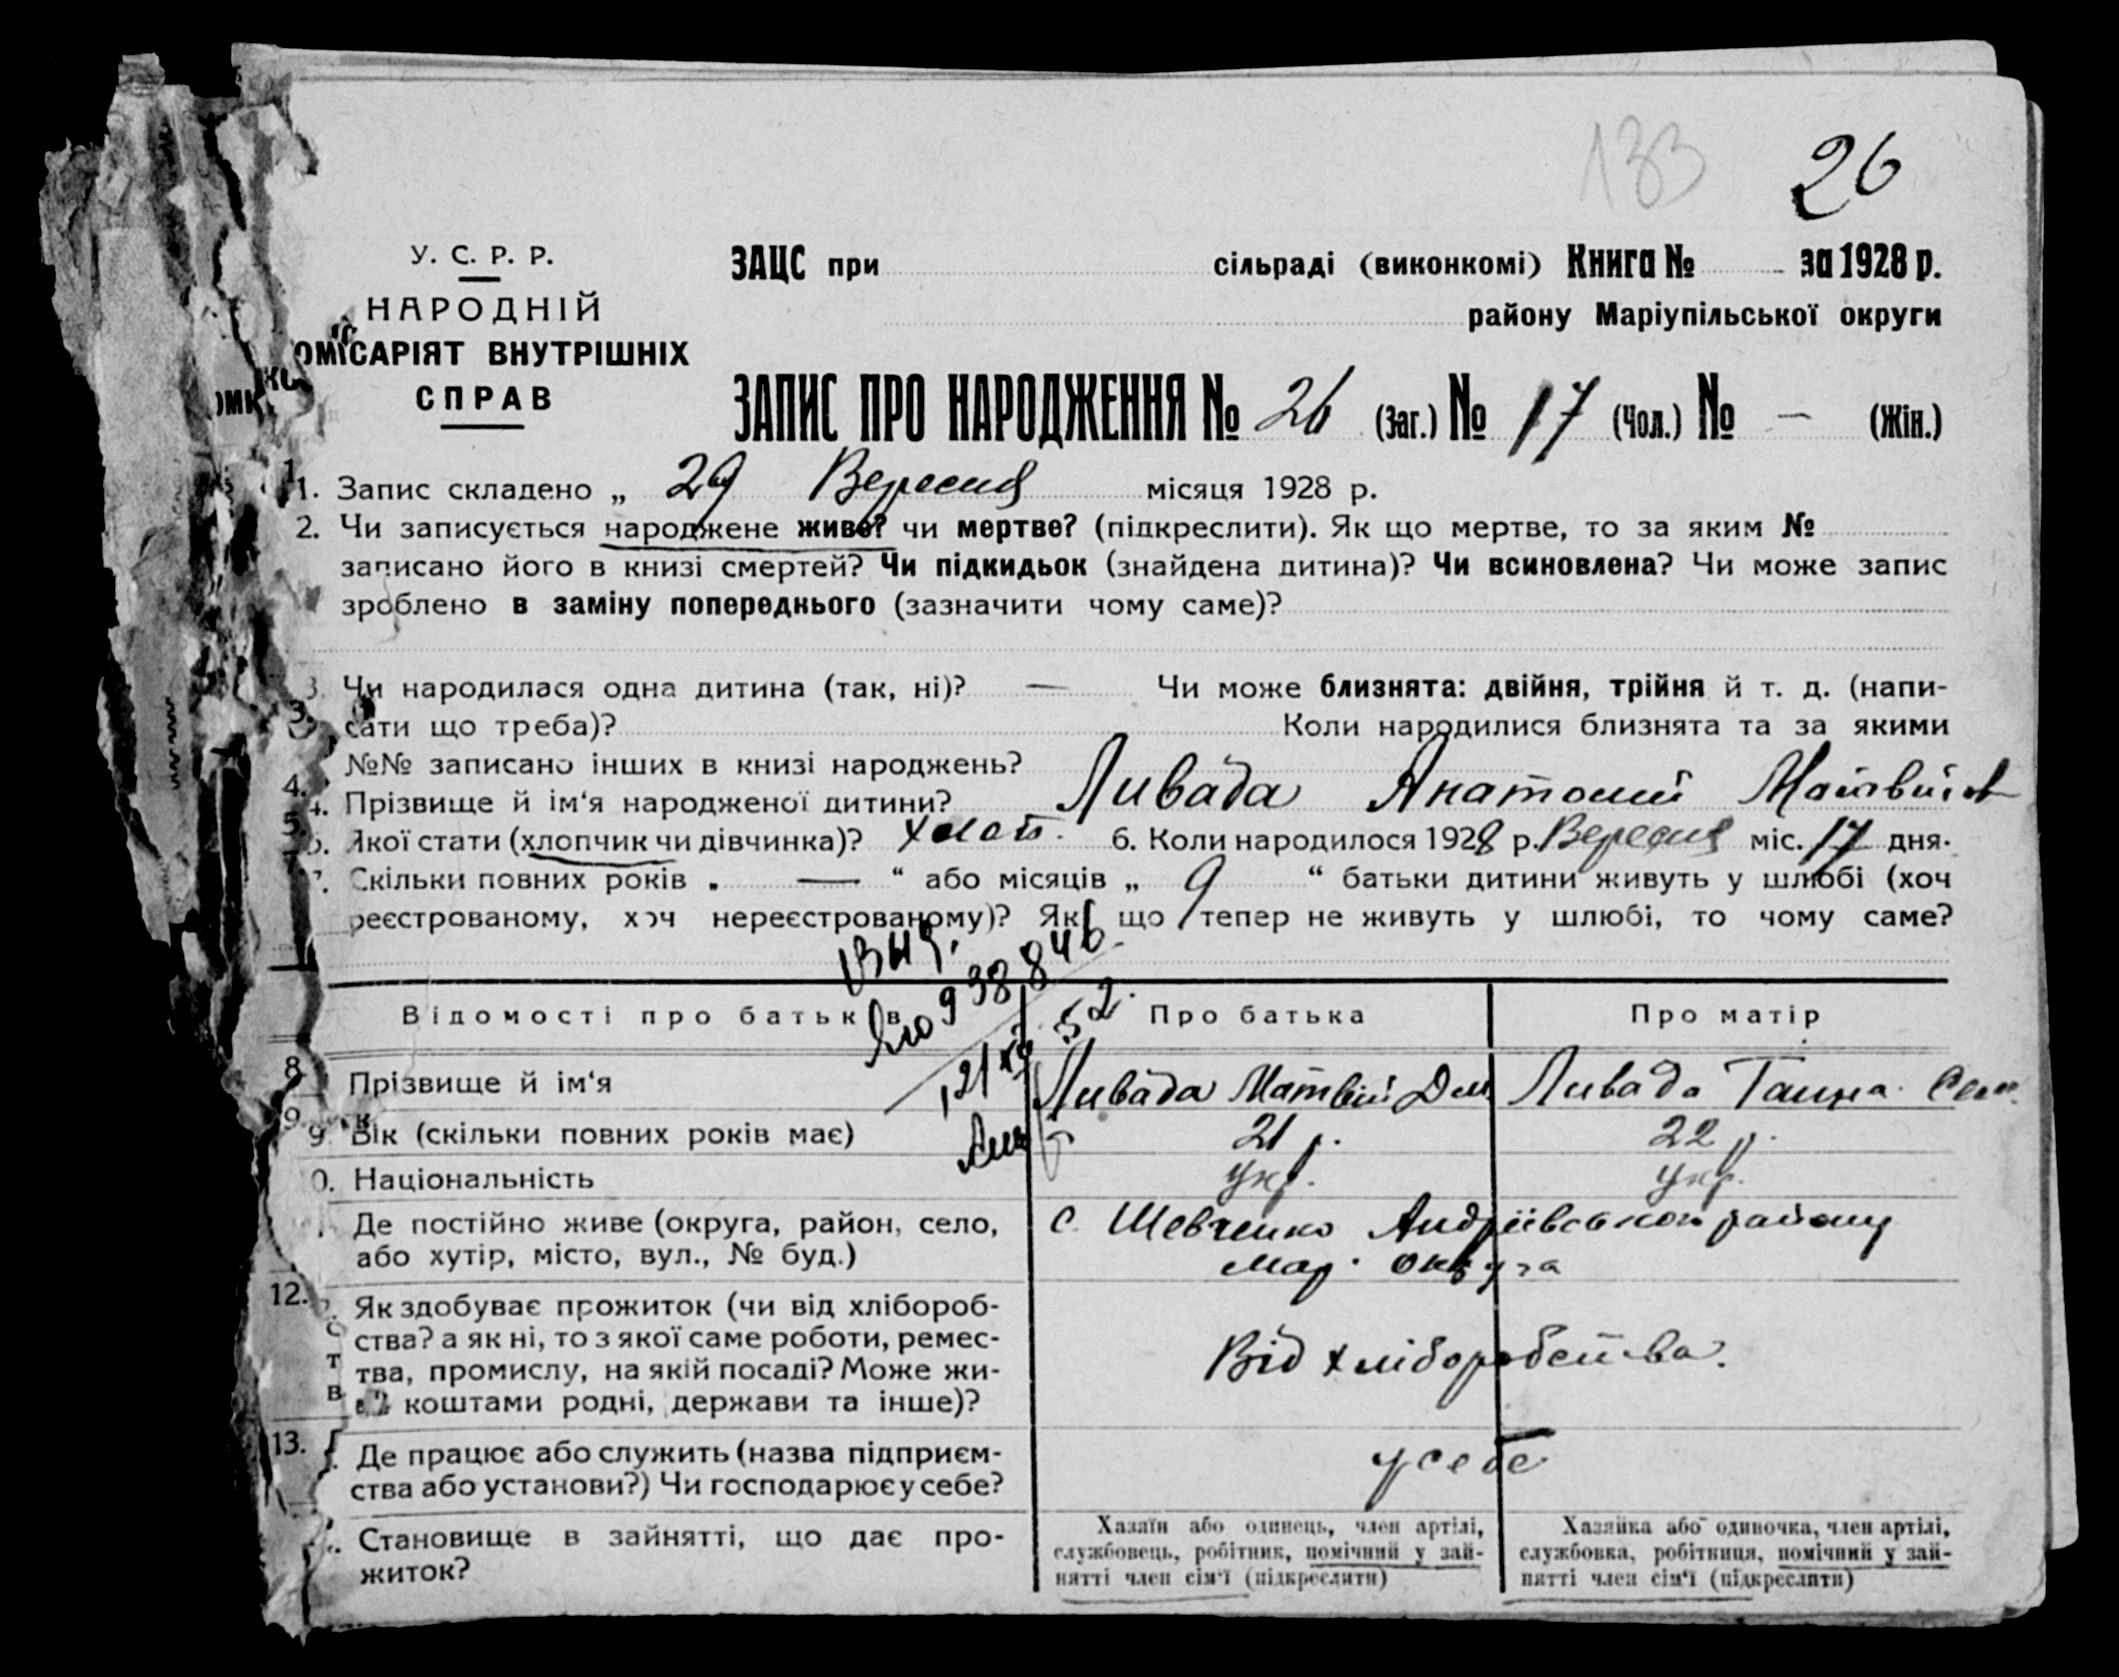 133 26
У. С. Р. Р.
НАРОДНІЙ
ОМІСАРІЯТ ВНУТРІШНІХ
СПРАВ
ЗАЦС при сільраді (виконкомі) Книга № за 1928 р.
району Маріупільської округи
ЗАПИС ПРО НАРОДЖЕННЯ № 26 (Заг.) № 17 (Чол.) № — (Жін.)
1. Запис складено „ 29 Вересня місяця 1928 р.
2. Чи записується народжене живе? чи мертве? (підкреслити). Як що мертве, то за яким №
записано його в книзі смертей? Чи підкидьок (знайдена дитина)? Чи всиновлена? Чи може запис
зроблено в заміну попереднього (зазначити чому саме)?
3. Чи народилася одна дитина (так, ні)? — Чи може близнята: двійня, трійня й т. д. (напи-
сати що треба)? Коли народилися близнята та за якими
№№ записано інших в книзі народжень?
4. Прізвище й ім‘я народженої дитини? Ливада Анатолий Матвіїв
5. Якої стати (хлопчик чи дівчинка)? хлоп. 6. Коли народилося 1928 р. Вересня міс. 17 дня.
7. Скільки повних років „ — “ або місяців „ 9 “ батьки дитини живуть у шлюбі (хоч
реєстрованому, хоч нереєстрованому)? Як що тепер не живуть у шлюбі, то чому саме?
938846
21 52
Відомості про батьків Про батька Про матір
8 Прізвище й ім‘я Ливада Матвій Дем. Ливада Ганна Сем.
9. Вік (скільки повних років має) 21 р. 22 р.
0. Національність укр. укр.
Де постійно живе (округа, район, село, с. Шевченко Андріївського району
або хутір, місто, вул., № буд.) Мар. округа
12. Як здобуває прожиток (чи від хлібороб-
ства? а як ні, то з якої саме роботи, ремес-
тва, промислу, на якій посаді? Може жи- Від хліборобства.
ве коштами родні, держави та інше)?
13. Де працює або служить (назва підприєм- у себе
ства або установи?) Чи господарює у себе?
Становище в зайнятті, що дає про-
житок?
Хазяїн або одинець, член артілі,
службовець, робітник, помічний у зай-
нятті член сім‘ї (підкреслити)
Хазяйка або одиночка, член артілі,
службовка, робітниця, помічний у зай-
нятті член сім‘ї (підкреслити)